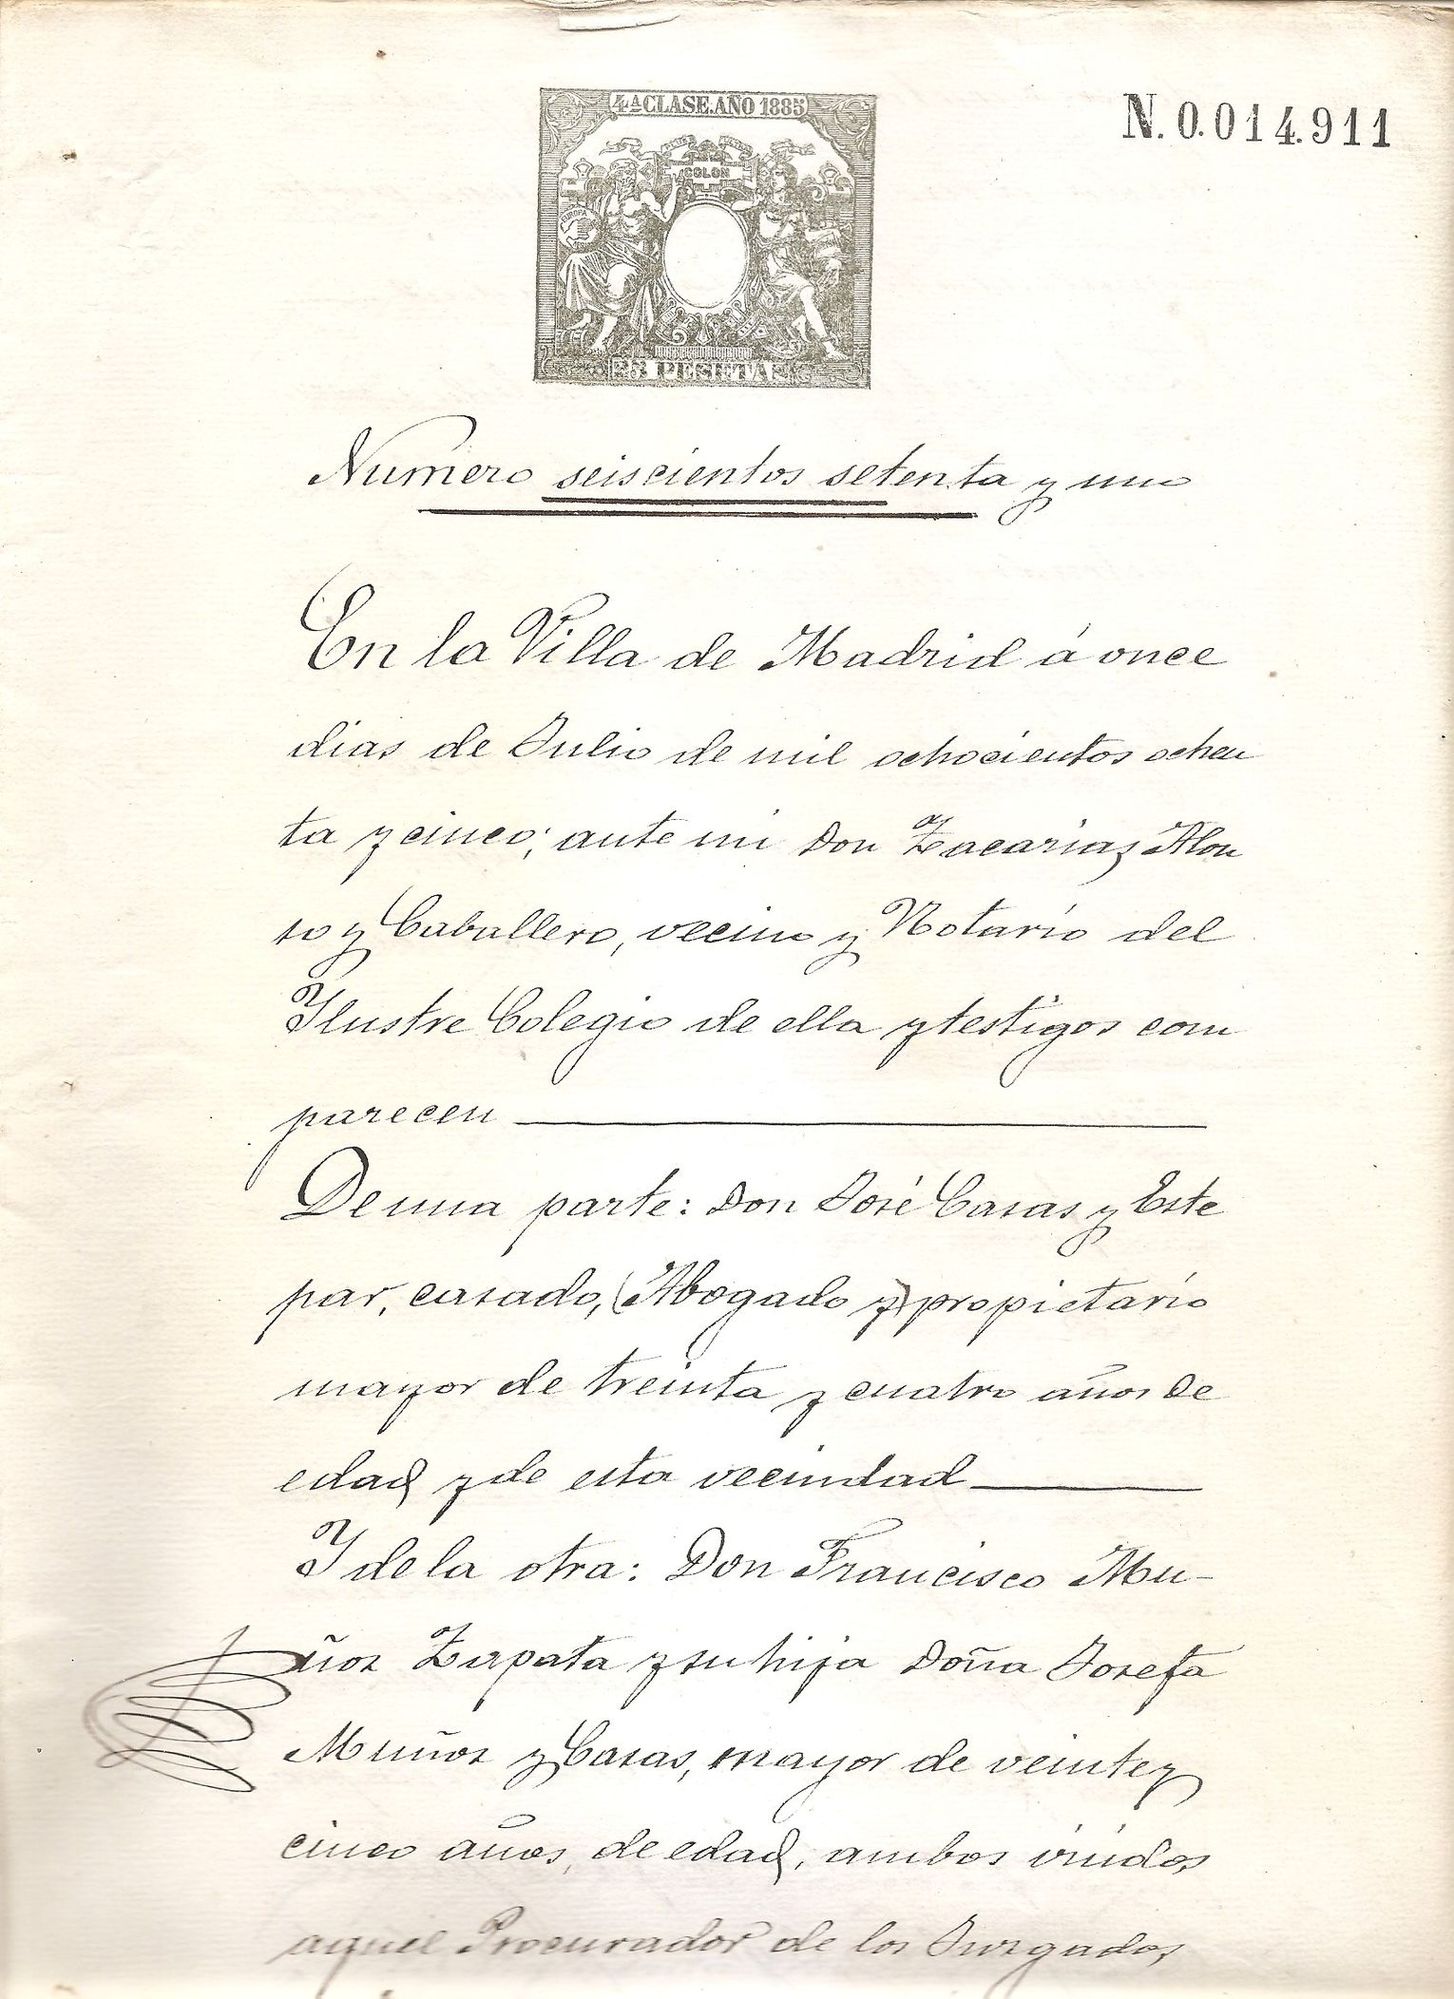 4ª CLASE. AÑO 1885
N. 0.014.911
COLON
EUROPA
25 PESETAS
Numero seiscientos setenta y uno
En la Villa de Madrid á once
dias de Julio de mil ochocientos ochen
ta y cinco; ante mi Don Zacarias Alon
so y Caballero, vecino y Notario del
Ilustre Colegio de ella y testigos com
parecen
De una parte: Don José Casas y Este
par, casado, (Abogado y) propietario
mayor de treinta y cuatro años de
edad y de esta vecindad
Y de la otra: Don Francisco Mu-
ñoz Zapata y su hija Doña Josefa
Muñoz y Casas, mayor de veinte y
cinco años, de edad, ambos viudos,
aquel Procurador de los Juzgados,